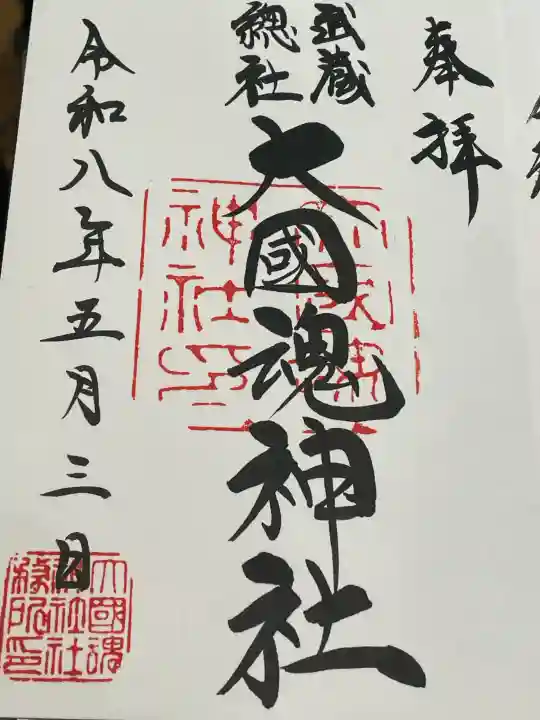 奉拝
武蔵
總社
大國魂神社
令和八年五月三日
大國魂
神社社
務所印